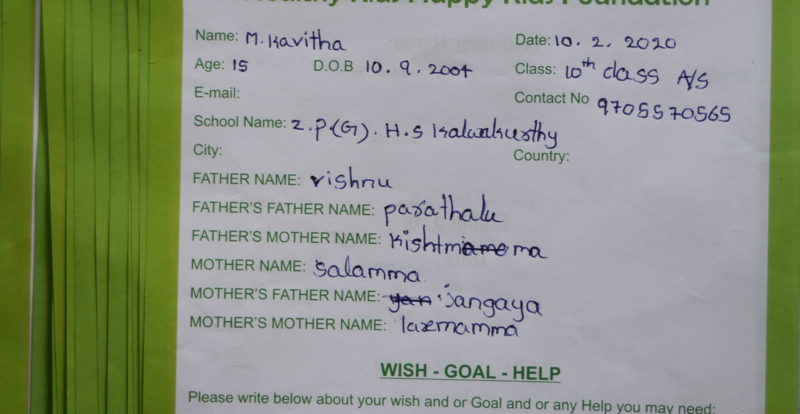 Healthy Kids Happy Kids Foundation
Name: M. Kavitha Date: 10. 2. 2020
Age: 15 D.O.B 10. 9. 2004 Class: 10th class A/S
E-mail: Contact No 9705570565
School Name: Z.P(G). H.S Kalwakurthy
City: Country:
FATHER NAME: Vishnu
FATHER'S FATHER NAME: parathalu
FATHER'S MOTHER NAME: Kishtmama
MOTHER NAME: Salamma
MOTHER'S FATHER NAME: Jangaya
MOTHER'S MOTHER NAME: laxmamma
WISH - GOAL - HELP
Please write below about your wish and or Goal and or any Help you may need: